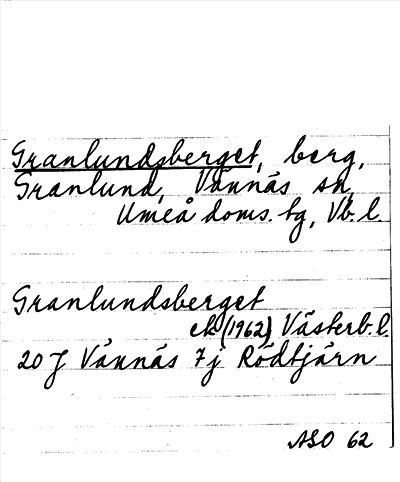 Granlundsberget, berg,
Granlund, Vännäs sn,
Umeå doms. tg, Vb. l.
Granlundsberget
ek (1962) Västerb. l.
20 J Vännäs 7j Rödtjärn
ASO 62